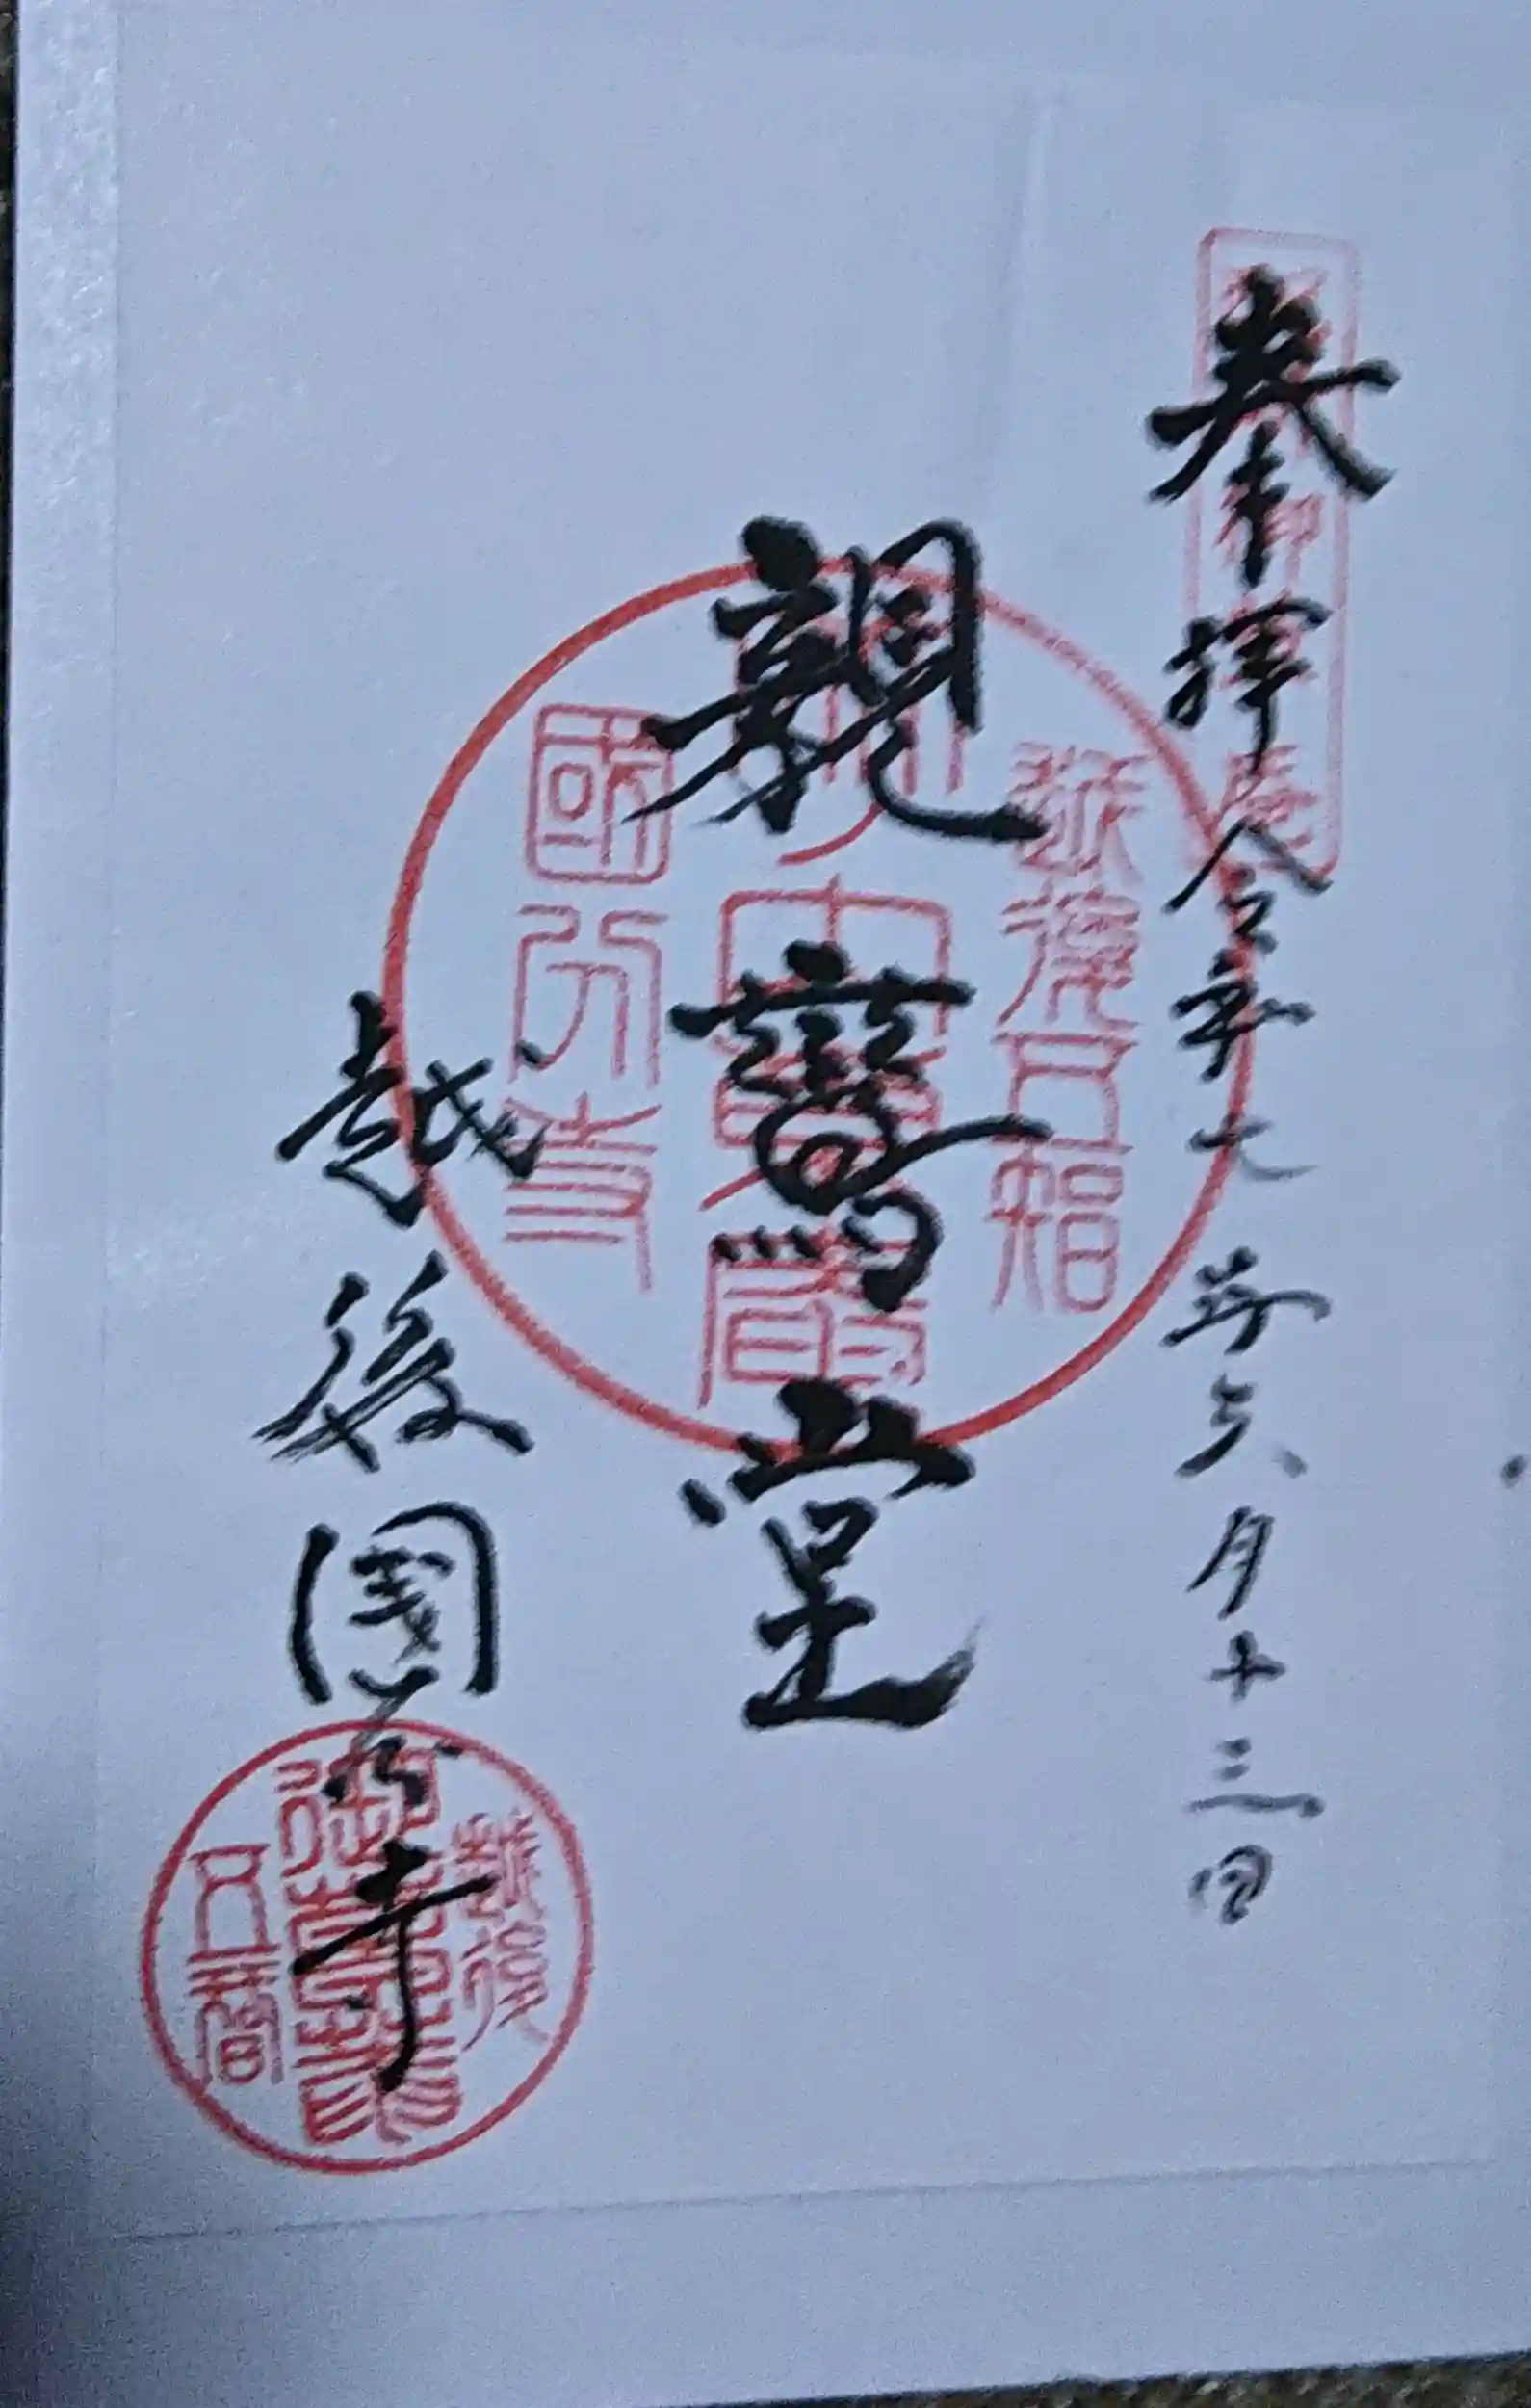 奉拝 令和七年六月十三日
親鸞堂
越後国分寺
越後五智
國分寺
越後
五智